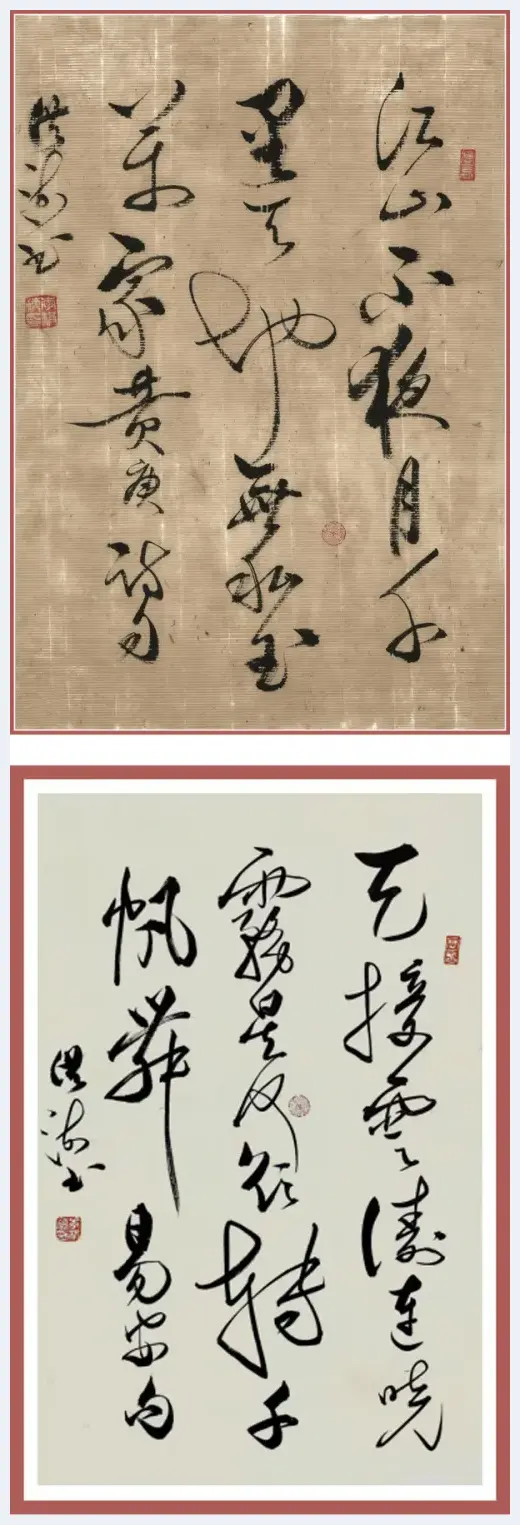 江山不夜月千
里天地無私玉
萬家黄庚詩句
洪书
天接雲濤連曉
霧星河欲轉千
帆舞易安句
洪书